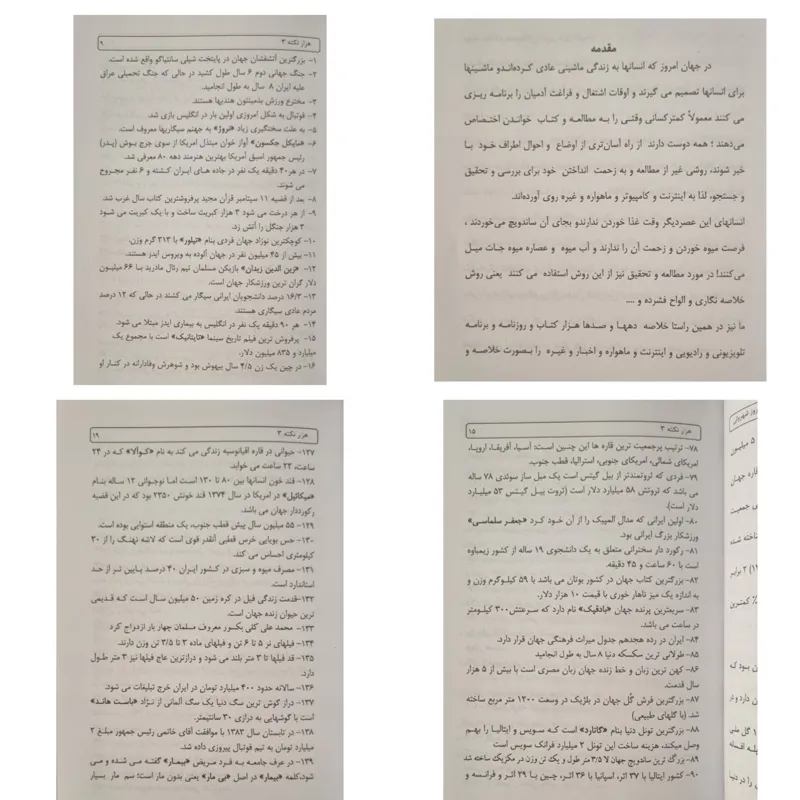 مقدمه
در جهان امروز که انسانها به زندگی ماشینی عادی کرده‌اندو ماشینها
برای انسانها تصمیم می گیرند و اوقات اشتغال و فراغت آدمیان را برنامه ریزی
می کنند معمولاً کمترکسانی وقتی را به مطالعه و کتاب خواندن اختصاص
می‌دهند ؛ همه دوست دارند از راه آسان‌تری از اوضاع و احوال اطراف خود با
خبر شوند، روشی غیر از مطالعه و به زحمت انداختن خود برای بررسی و تحقیق
و جستجو، لذا به اینترنت و کامپیوتر و ماهواره و غیره روی آورده‌اند.
انسانهای این عصردیگر وقت غذا خوردن ندارندو بجای آن ساندویچ می‌خوردند ،
فرصت میوه خوردن و زحمت آن را ندارند و آب میوه و عصاره میوه جات میل
می‌کنند! در مورد مطالعه و تحقیق نیز از این روش استفاده می کنند یعنی روش
خلاصه نگاری و الواح فشرده و ....
ما نیز در همین راستا خلاصه دهها و صدها هزار کتاب و روزنامه و برنامه
تلویزیونی و رادیویی و اینترنت و ماهواره و اخبار و غیره را بصورت خلاصه و
هزار نکته ۳ ۹
۱- بزرگترین آتشفشان جهان در پایتخت شیلی سانتیاگو واقع شده است.
۲- جنگ جهانی دوم ۶ سال طول کشید در حالی که جنگ تحمیلی عراق
علیه ایران ۸ سال به طول انجامید.
۳- مخترع ورزش بدمینتون هندیها هستند.
۴- فوتبال به شکل امروزی اولین بار در انگلیس بازی شد.
۵- به علت سختگیری زیاد «نروژ» به جهنم سیگاریها معروف است.
۶- «مایکل جکسون» آواز خوان مبتذل آمریکا از سوی جرج بوش (پدر)
رئیس جمهور اسبق آمریکا بهترین هنرمند دهه ۸۰ معرفی شد.
۷- در هر۴۰ دقیقه یک نفر در جاده های ایران کشته و ۶ نفر مجروح
می شوند.
۸- بعد از قضیه ۱۱ سپتامبر قرآن مجید پرفروشترین کتاب سال غرب شد.
۹- از هر درخت می شود ۳ هزار کبریت ساخت و با یک کبریت می شود
۳ هزار جنگل را آتش زد.
۱۰- کوچکترین نوزاد جهان فردی بنام «تیلور» با ۳۱۳ گرم وزن.
۱۱- بیش از ۴۵ میلیون نفر در جهان آلوده به ویروس ایدز هستند.
۱۲- «زین الدین زیدان» بازیکن مسلمان تیم رئال مادرید با ۶۶ میلیون
دلار گران ترین ورزشکار جهان است.
۱۳- ۱۶/۳ درصد دانشجویان ایرانی سیگار می کشند در حالی که ۱۲ درصد
مردم عادی سیگاری هستند.
۱۴- هر ۹۰ دقیقه یک نفر در انگلیس به بیماری ایدز مبتلا می شود.
۱۵- پرفروش ترین فیلم تاریخ سینما «تایتانیک» است با مجموع یک
میلیارد و ۸۳۵ میلیون دلار.
۱۶- در چین یک زن ۴/۵ سال بیهوش بود و شوهرش وفادارانه در کنار او
هزار نکته ۳ ۱۵
۷۸- ترتیب پرجمعیت ترین قاره ها این چنین است: آسیا، آفریقا، اروپا،
امریکای شمالی، امریکای جنوبی، استرالیا، قطب جنوب.
۷۹- فردی که ثروتمندتر از بیل گیتس است یک مبل ساز سوئدی ۷۸ ساله
می باشد که ثروتش ۵۸ میلیارد دلار است (ثروت بیل گیتس ۵۳ میلیارد
دلار است).
۸۰- اولین ایرانی که مدال المپیک را از آن خود کرد «جعفر سلماسی»
ورزشکار بزرگ ایرانی بود.
۸۱- رکورد دار سخنرانی متعلق به یک دانشجوی ۱۹ ساله از کشور زیمباوه
است با ۶۰ ساعت و ۴۵ دقیقه.
۸۲- بزرگترین کتاب جهان در کشور بوتان می باشد با ۵۹ کیلوگرم وزن و
به اندازه یک میز ناهار خوری با قیمت ۱۰ هزار دلار.
۸۳- سریعترین پرنده جهان «بادقپک» نام دارد که سرعتش۳۰۰ کیلومتر
در ساعت می باشد.
۸۴- ایران در رده هجدهم جدول میراث فرهنگی جهان قرار دارد.
۸۵- طولانی ترین سکسکه دنیا ۸ سال به طول انجامید.
۸۶- کهن ترین زبان و خط زنده جهان زبان مصری است با بیش از ۵ هزار
سال قدمت.
۸۷- بزرگترین فرش گُل جهان در بلژیک در وسعت ۱۲۰۰ متر مربع ساخته
شد. (با گلهای طبیعی)
۸۸- بزرگترین تونل دنیا بنام «گاتارد» است که سویس و ایتالیا را بهم
وصل میکند، هزینه ساخت این تونل ۲ میلیارد فرانک سویس است
۸۹- بزرگ ترین ساندویچ جهان ۳/۵ متر طول و یک تن وزن در مکزیک ساخته شد
۹۰- کشور ایتالیا با ۳۷ اثر، اسپانیا با ۳۶ اثر، چین با ۲۹ اثر و فرانسه و
هزار نکته ۳ ۱۹
۱۲۷- حیوانی در قاره اقیانوسیه زندگی می کند به نام «کوآلا» که در ۲۴
ساعت، ۲۲ ساعت می خوابد.
۱۲۸- قند خون انسانها بین ۸۰ تا ۱۳۰ است اما نوجوانی ۱۲ ساله بنام
«میکائیل» در امریکا در سال ۱۳۷۴ قند خونش ۲۳۵۰ بود که در این قضیه
رکورددار جهان می باشد.
۱۲۹- ۵۵ میلیون سال پیش قطب جنوب، یک منطقه استوایی بوده است.
۱۳۰- حس بویایی خرس قطبی آنقدر قوی است که لاشه نهنگ را از ۳۰
کیلومتری احساس می کند.
۱۳۱- مصرف میوه و سبزی در کشور ایران ۴۰ درصد پایین تر از حد
استاندارد است.
۱۳۲-قدمت زندگی فیل در کره زمین ۵۰ میلیون سال است که قدیمی
ترین حیوان زنده جهان است.
۱۳۳- محمد علی کلی بکسور معروف مسلمان چهار بار ازدواج کرد
۱۳۴- فیلهای نر ۵ تا ۶ تن و فیلهای ماده ۳ تا ۳/۵ تن وزن دارند.
۱۳۵- قد فیلها تا ۳ متر بلند می شود و درازترین عاج فیلها نیز ۳ متر طول
دارد.
۱۳۶- سالانه حدود ۴۰۰ میلیارد تومان در ایران خرج تبلیغات می شود.
۱۳۷- دراز گوش ترین سگ دنیا یک سگ آلمانی از نژاد «باست هاند»
است با گوشهایی به درازی ۳۰ سانتیمتر.
۱۳۸- در تابستان سال ۱۳۸۳ با موافقت آقای خاتمی رئیس جمهور مبلغ ۲
میلیارد تومان به تیم فوتبال پیروزی داده شد.
۱۳۹- در عرف جامعه به فرد مریض «بیمار» گفته می شده و می
شود،کلمه «بیمار» در اصل «بی مار» یعنی بدون مار است؛ سم مار بسیار